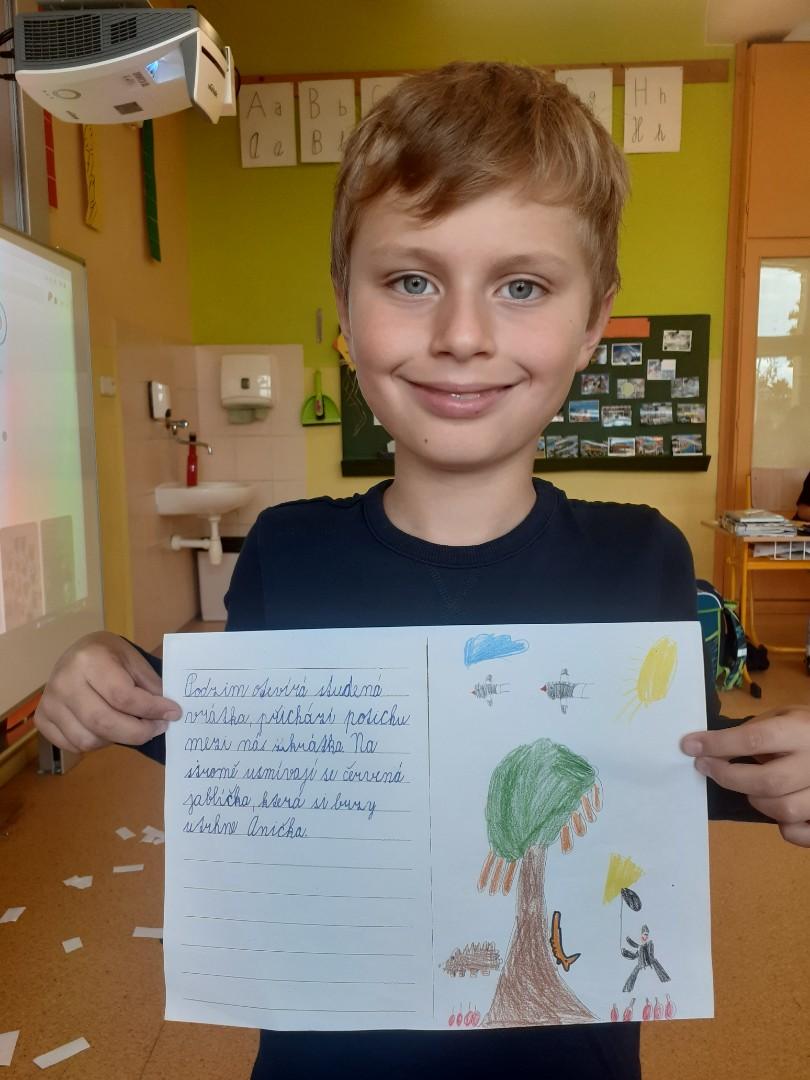 A a
B b
C
g
H h
A a
B b
H h
Podzim otevírá studená
vrátka, přichází potichu
mezi nás zkrátka. Na
stromě usmívají se červená
jablíčka, která si brzy
utrhne Anička.